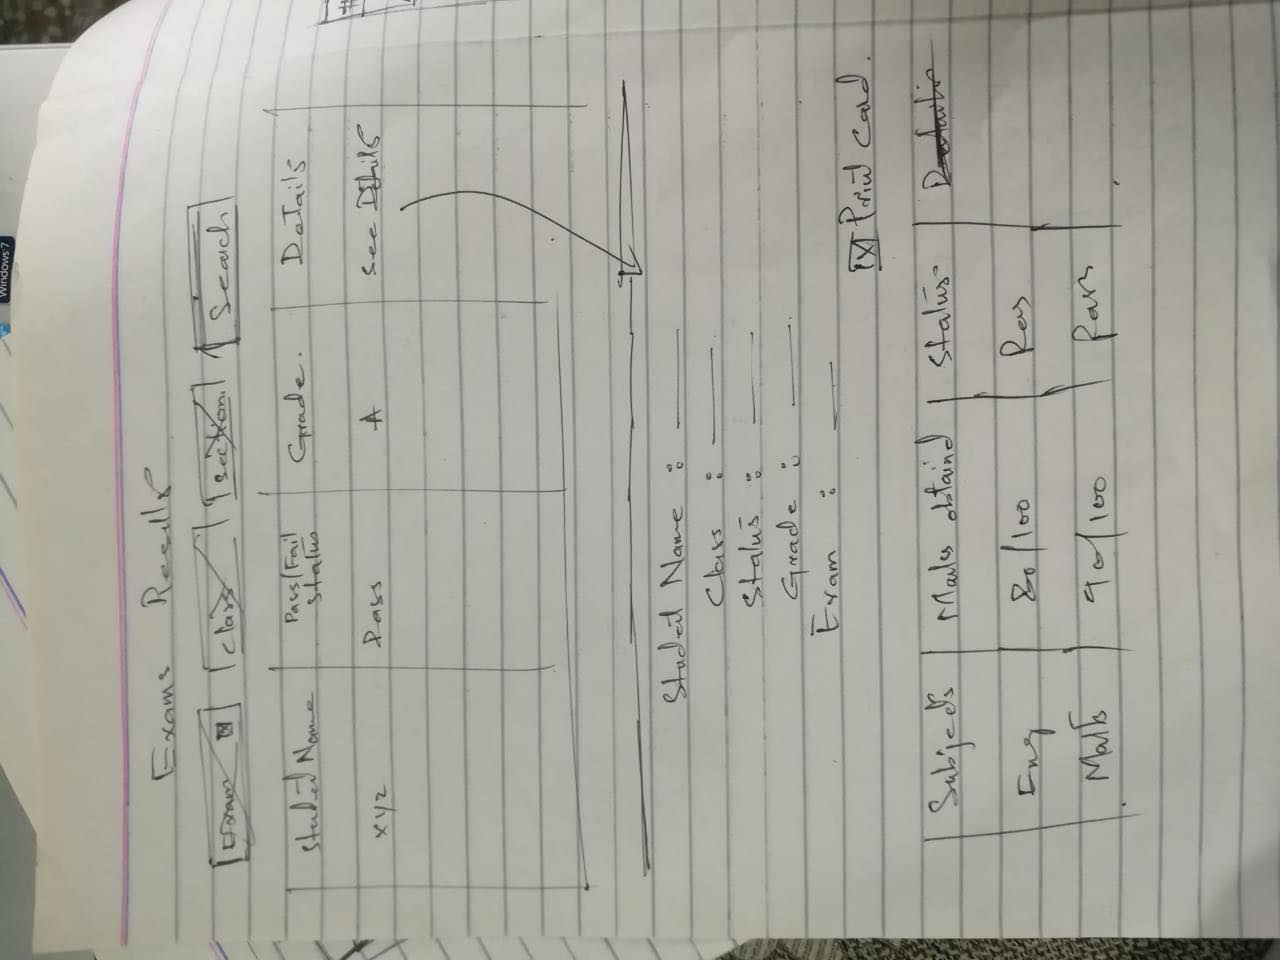 Windows 7
Exams Results
Exam Class Section. Search
Student Name Pass/Fail Status Grade. Details
xyz Pass A See Details
Student Name : ——
Class : ——
Status : ——
Grade : ——.
Exam : ——
Print Card.
Subjects Marks obtaind Status
Eng 80/100 Pas
Maths 90/100 Pass
#